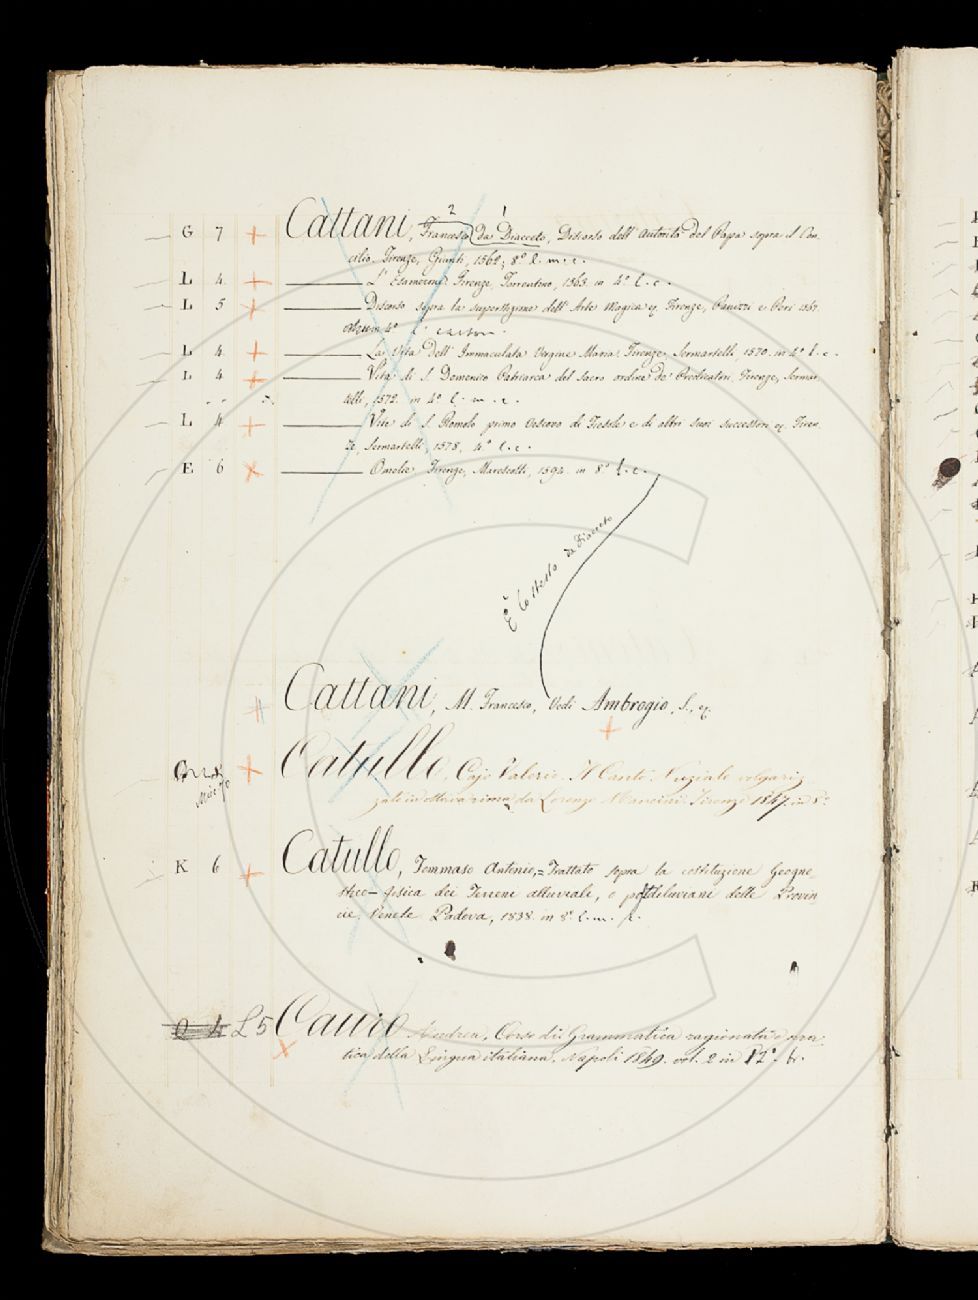 2 1
G 7 Cattani, Francesco da Diacceto, Discorso dell' autorità del Papa sopra il Con
cilio. Firenze, Giunti, 1562, 8.° l. m. c.
L 4 L'Esamerone. Firenze, Torrentino, 1563. in 4.° l. c.
L 5 Discorso sopra la superstizione dell' Arte Magica ec. Firenze, Panizzi e Peri 1567.
in 4.°
L 4 La Vita dell' Immaculata Vergine Maria. Firenze, Sermartelli, 1570. in 4.° l. c.
L 4 Vita di S. Domenico Patriarca del Sacro ordine de' Predicatori. Firenze, Sermar
telli, 1572. in 4.° l. m. c.
L 4 Vite di S. Romolo primo Vescovo di Fiesole e di altri suoi successori ec. Firen
ze, Sermartelli, 1578, 4.° l. c.
E 6 Omelie. Firenze, Marescotti, 1594. in 8.° l. c.
È lo stesso da Diacceto
Cattani, M. Francesco, Vedi Ambrogio, S., ec.
Catullo, Cajo Valerio. Il Canto Nuziale volgariz
zato in ottava rima da Lorenzo Mancini. Firenze 1847. in 8.°
K 6 Catullo, Tommaso Antonio, = Trattato sopra la costituzione Geogno
stico-fisica dei Terreni alluviali, o postdiluviani delle Provin
cie Venete. Padova, 1838. in 8.° l. m. c.
L 5 Cauro Andrea, Corso di Grammatica ragionata e pra
tica della Lingua italiana. Napoli 1849. vol. 2 in 12.° br.